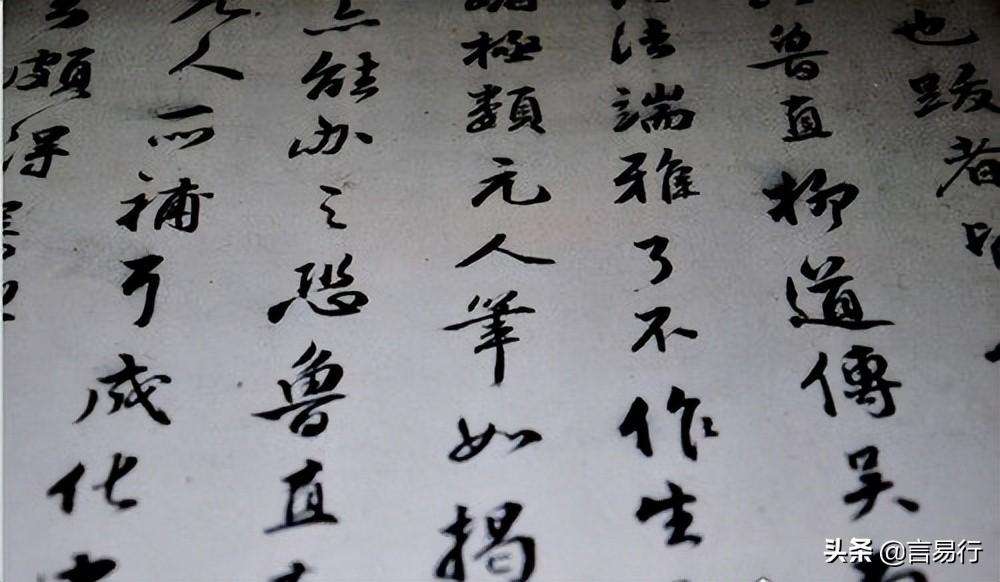 也跋者
魯直柳道傳吴
法端雅了不作生
極類元人筆如揭
能办之恐魯直
人所補予成化
頗得
头条 @言易行